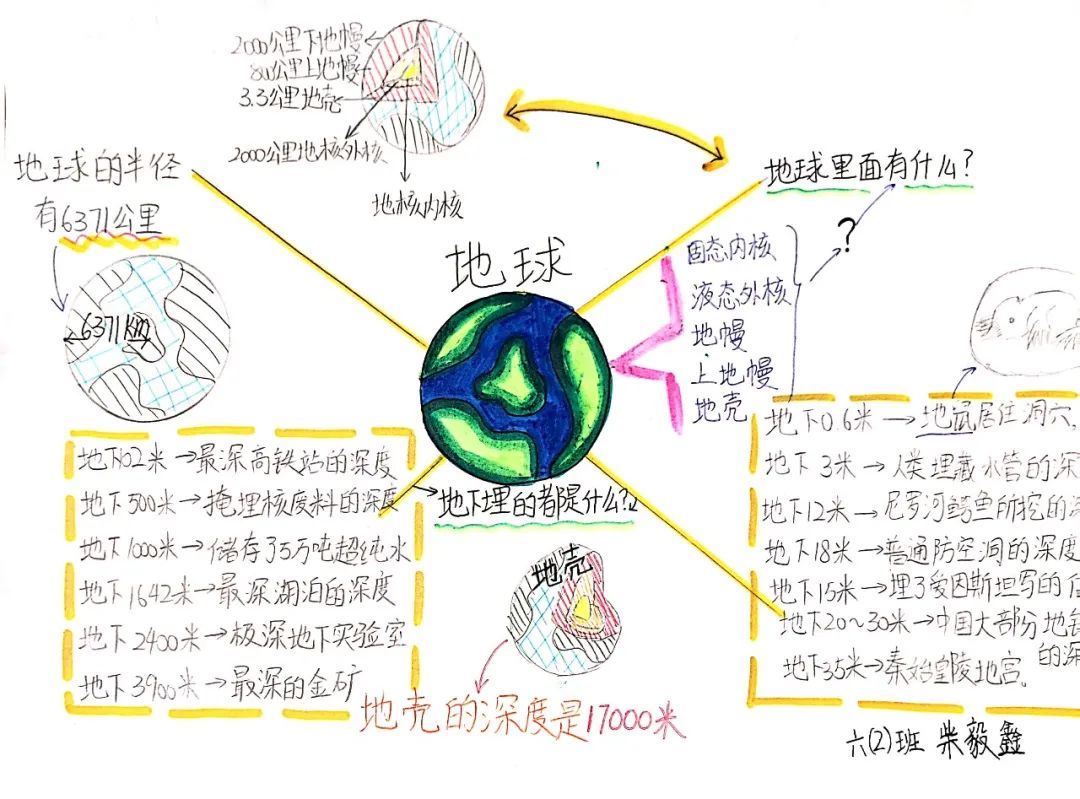 2000公里下地幔
800公里上地幔
3.3公里地壳
2000公里地核外核
地核内核
地球的半径
有6371公里
6371km
地球
地球里面有什么?
?
固态内核
液态外核
地幔
上地幔
地壳
地下102米→最深高铁站的深度
地下500米→掩埋核废料的深度
地下1000米→储存了5万吨超纯水
地下1642米→最深湖泊的深度
地下2400米→极深地下实验室
地下3900米→最深的金矿
地下埋的都是什么?
地壳
地壳的深度是17000米
地下0.6米→地鼠居住洞穴,
地下3米→人类埋藏水管的深
地下12米→尼罗河鳄鱼所挖的
地下18米→普通防空洞的深度
地下15米→埋了爱因斯坦写的
地下20~30米→中国大部分地铁
的深
地下35米→秦始皇陵地宫。
六(2)班 柴毅鑫